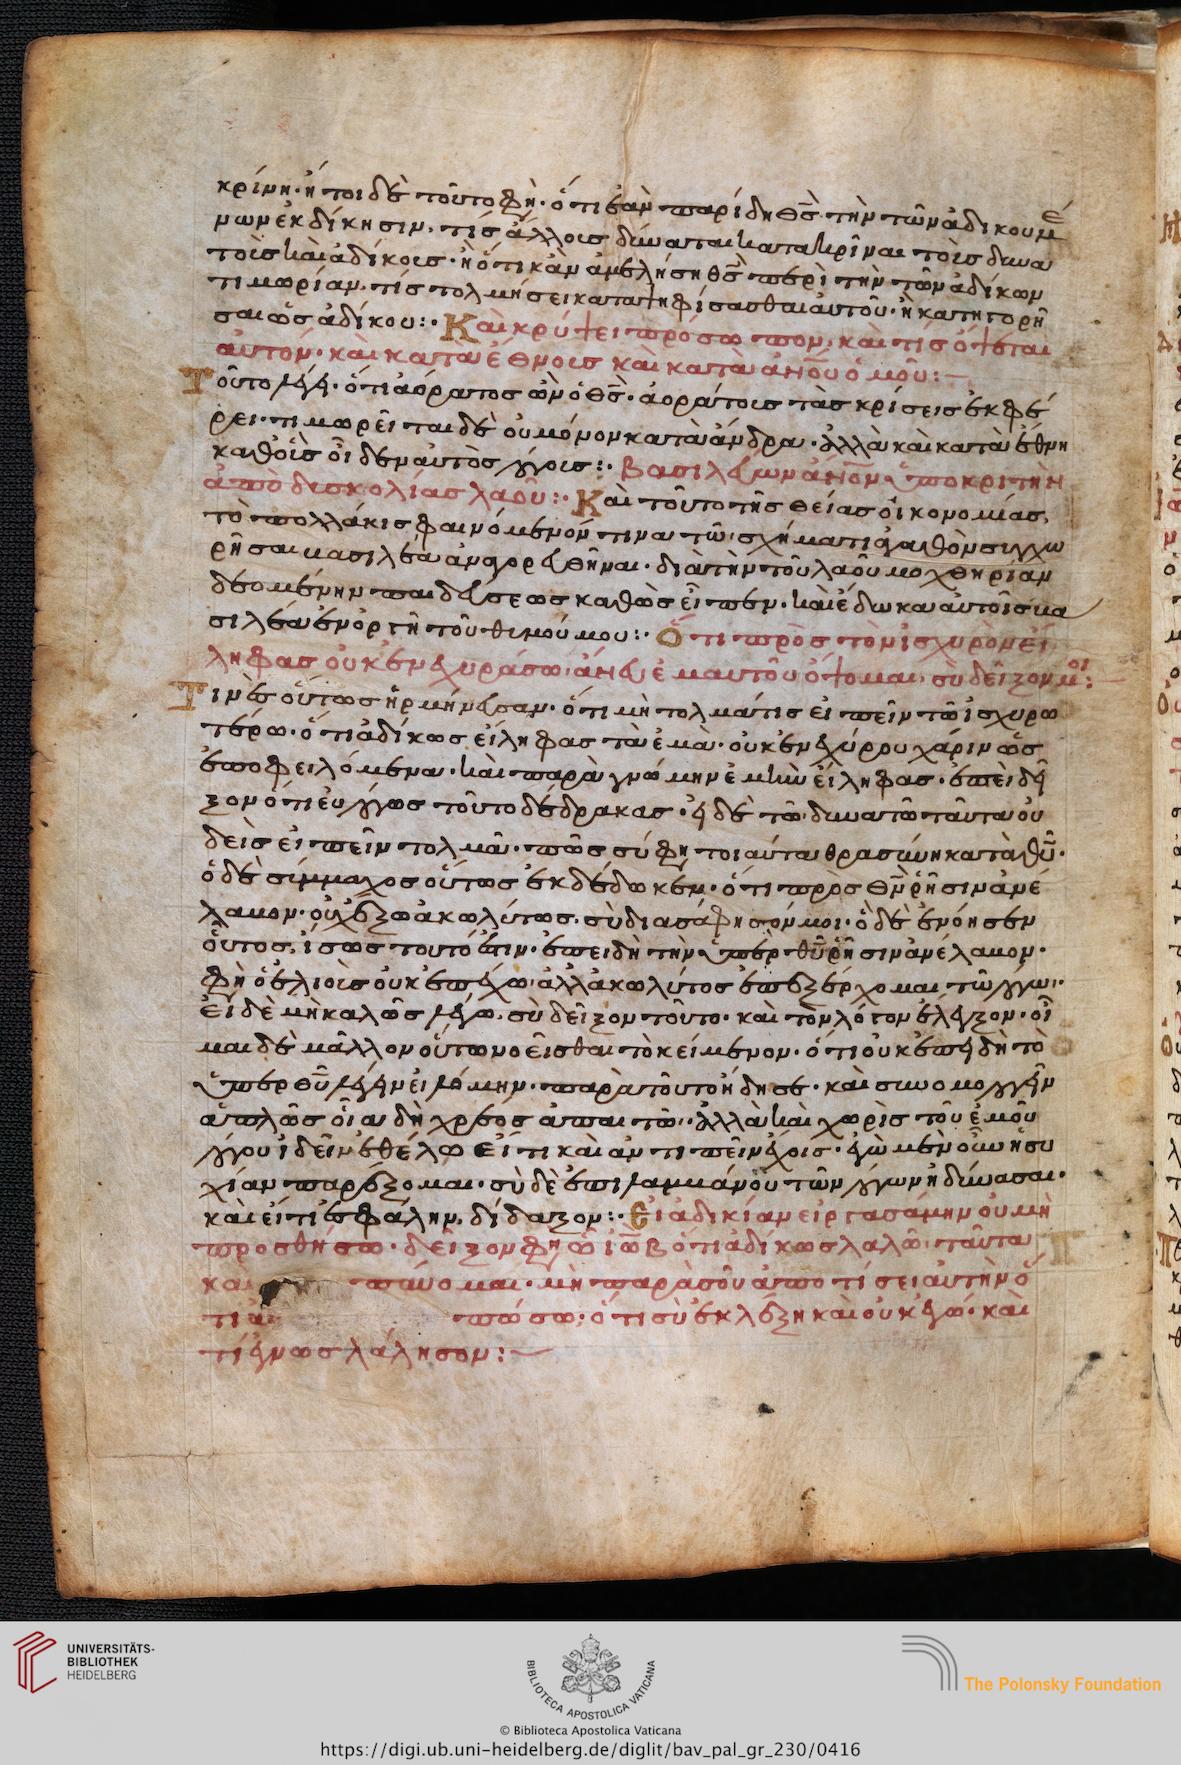 κρίνη· ἤτοι δὲ τοῦτο φὴ· ὅτι ἐὰν παρίδη θς τὴν τῶν ἀδικουμέ
νων ἐκδίκησιν, τίς ἄλλοις δύναται κατακρῖναι τοῖς δυνα
τοῖς καὶ ἀδίκοις· ἢ ὅτι κἂν ἀμελήση θς περὶ τὴν τῶν ἀδίκων
τιμωρίαν, τίς τολμήσει καταψηφίσασθαι αὐτοῦ· ἢ κατηγορῆ
σαι ὡς ἀδίκου:· Καὶ κρύψει πρόσωπον, καὶ τίς ὄψεται
αὐτόν· καὶ κατὰ ἔθνοις καὶ κατὰ ἀνου ὁμοῦ:—
Τοῦτο λέγει· ὅτι ἀόρατος ὢν ὁ θς· ἀοράτοις τὰς κρίσεις ἐκφέ
ρει· τιμωρεῖται δὲ οὐ μόνον κατὰ ἄνδρα· ἀλλὰ καὶ κατὰ ἔθνη
καθ' οἷς οἶδεν αὐτὸς λόγοις:· βασιλεύων ἀνον ὑποκριτὴν
ἀπὸ δυσκολίας λαοῦ:· Καὶ τοῦτο τῆς θείας οἰκονομίας,
τὸ πολλάκις φαινόμενόν τινα τῶ σχήματι ἀγαθὸν συγχω
ρῆσαι βασιλέα ἀναγορευθῆναι· διὰ τὴν τοῦ λαοῦ μοχθηρίαν
δεομένην παιδεύσεως καθὼς εἶπεν· καὶ ἔδωκα αὐτοῖς βα
σιλέα ἐν ὀργῆ τοῦ θυμού μου:· Ὅτι πρὸς τὸν ἰσχυρὸν εἴ
ληφας οὐκ ἐνεχυράσω· ἄνευ ἐμαυτοῦ ὄψομαι, σὺ δεῖξον μοι:
Τινὲς οὕτως ἡρμήνευσαν· ὅτι μὴ τολμάτις εἰπεῖν τῶ ἰσχυρω
τέρω· ὅτι ἀδίκως εἴληφας τὰ ἐμὰ· οὐκ ἐνεχύρου χάριν ὡς
ἐποφειλόμενα· καὶ παρὰ γνώμην ἐμὴν εἴληφας· ἐπεὶ δεῖ
ξον ὅτι εὐλόγως τοῦτο δέδρακας· εἰ δὲ τῶ δυνατῶ ταῦτα οὐ
δεὶς εἰπεῖν τολμᾶ· πῶς σύ φη τοιαύτα θρασύνη κατὰ θυ·
ὁ δὲ σύμμαχος οὕτως ἐκδέδωκεν· ὅτι πρὸς θν ῥῆσιν ἀνέ
λαβον· οὐχ' ἕξω ἀκωλύτως, σὺ διασάφησόν μοι· ὃ δὲ ἐνόησεν
οὗτος, ἴσως τουτό ἐστιν· ἐπειδὴ τὴν ὑπὲρ θυ ῥῆσιν ἀνέλαβον·
φὴ ὁ ἐλιοὺς οὐκ ἐπέχω· ἀλλ' ἀκωλύτος ἐπεξέρχομαι τῶ λόγω·
Εἰ δὲ μὴ καλῶς λέγω, σὺ δεῖξον τοῦτο· καὶ τὸν λόγον ἔλεγξον· οἶ
μαι δὲ μᾶλλον οὕτω νοεῖσθαι τὸ κείμενον· ὅτι οὐκ ἐπειδὴ τὸ
ὑπὲρ θυ λέγειν εἱλόμην· παρὰ τοῦτο ἤδη σε· καὶ συνομολογεῖν
ἁπλῶς οἷα δὴ χρέος ἀπαιτῶ· ἀλλὰ καὶ χωρὶς τοῦ ἐμοῦ
λόγου ἰδεῖν ἐθέλω εἴ τι καὶ ἀντιπεῖν ἔχοις· ἐγὼ μὲν οὖν ἡσυ
χίαν παρέξομαι· σὺ δὲ ἐπιλαμβάνου τῶν λόγων ἢ δύνασαι·
καὶ εἴ τι ἐσφάλην, δίδαξον:· Εἰ ἀδικίαν εἰργασάμην οὐ μὴ
προσθήσω· δεῖξον φη ὦ ἰὼβ ὅτι ἀδίκως λαλῶ, ταῦτα
καὶ παύομαι· μὴ παρὰ σοῦ ἀποτίσει αὐτὴν ὅ
τι ἀ πώσω, ὅτι σὺ ἐκλέξη καὶ οὐκ ἐγώ· καὶ
τί ἔγνως λάλησον:—
UNIVERSITÄTS-
BIBLIOTHEK
HEIDELBERG
BIBLIOTECA APOSTOLICA VATICANA
The Polonsky Foundation
© Biblioteca Apostolica Vaticana
https://digi.ub.uni-heidelberg.de/diglit/bav_pal_gr_230/0416